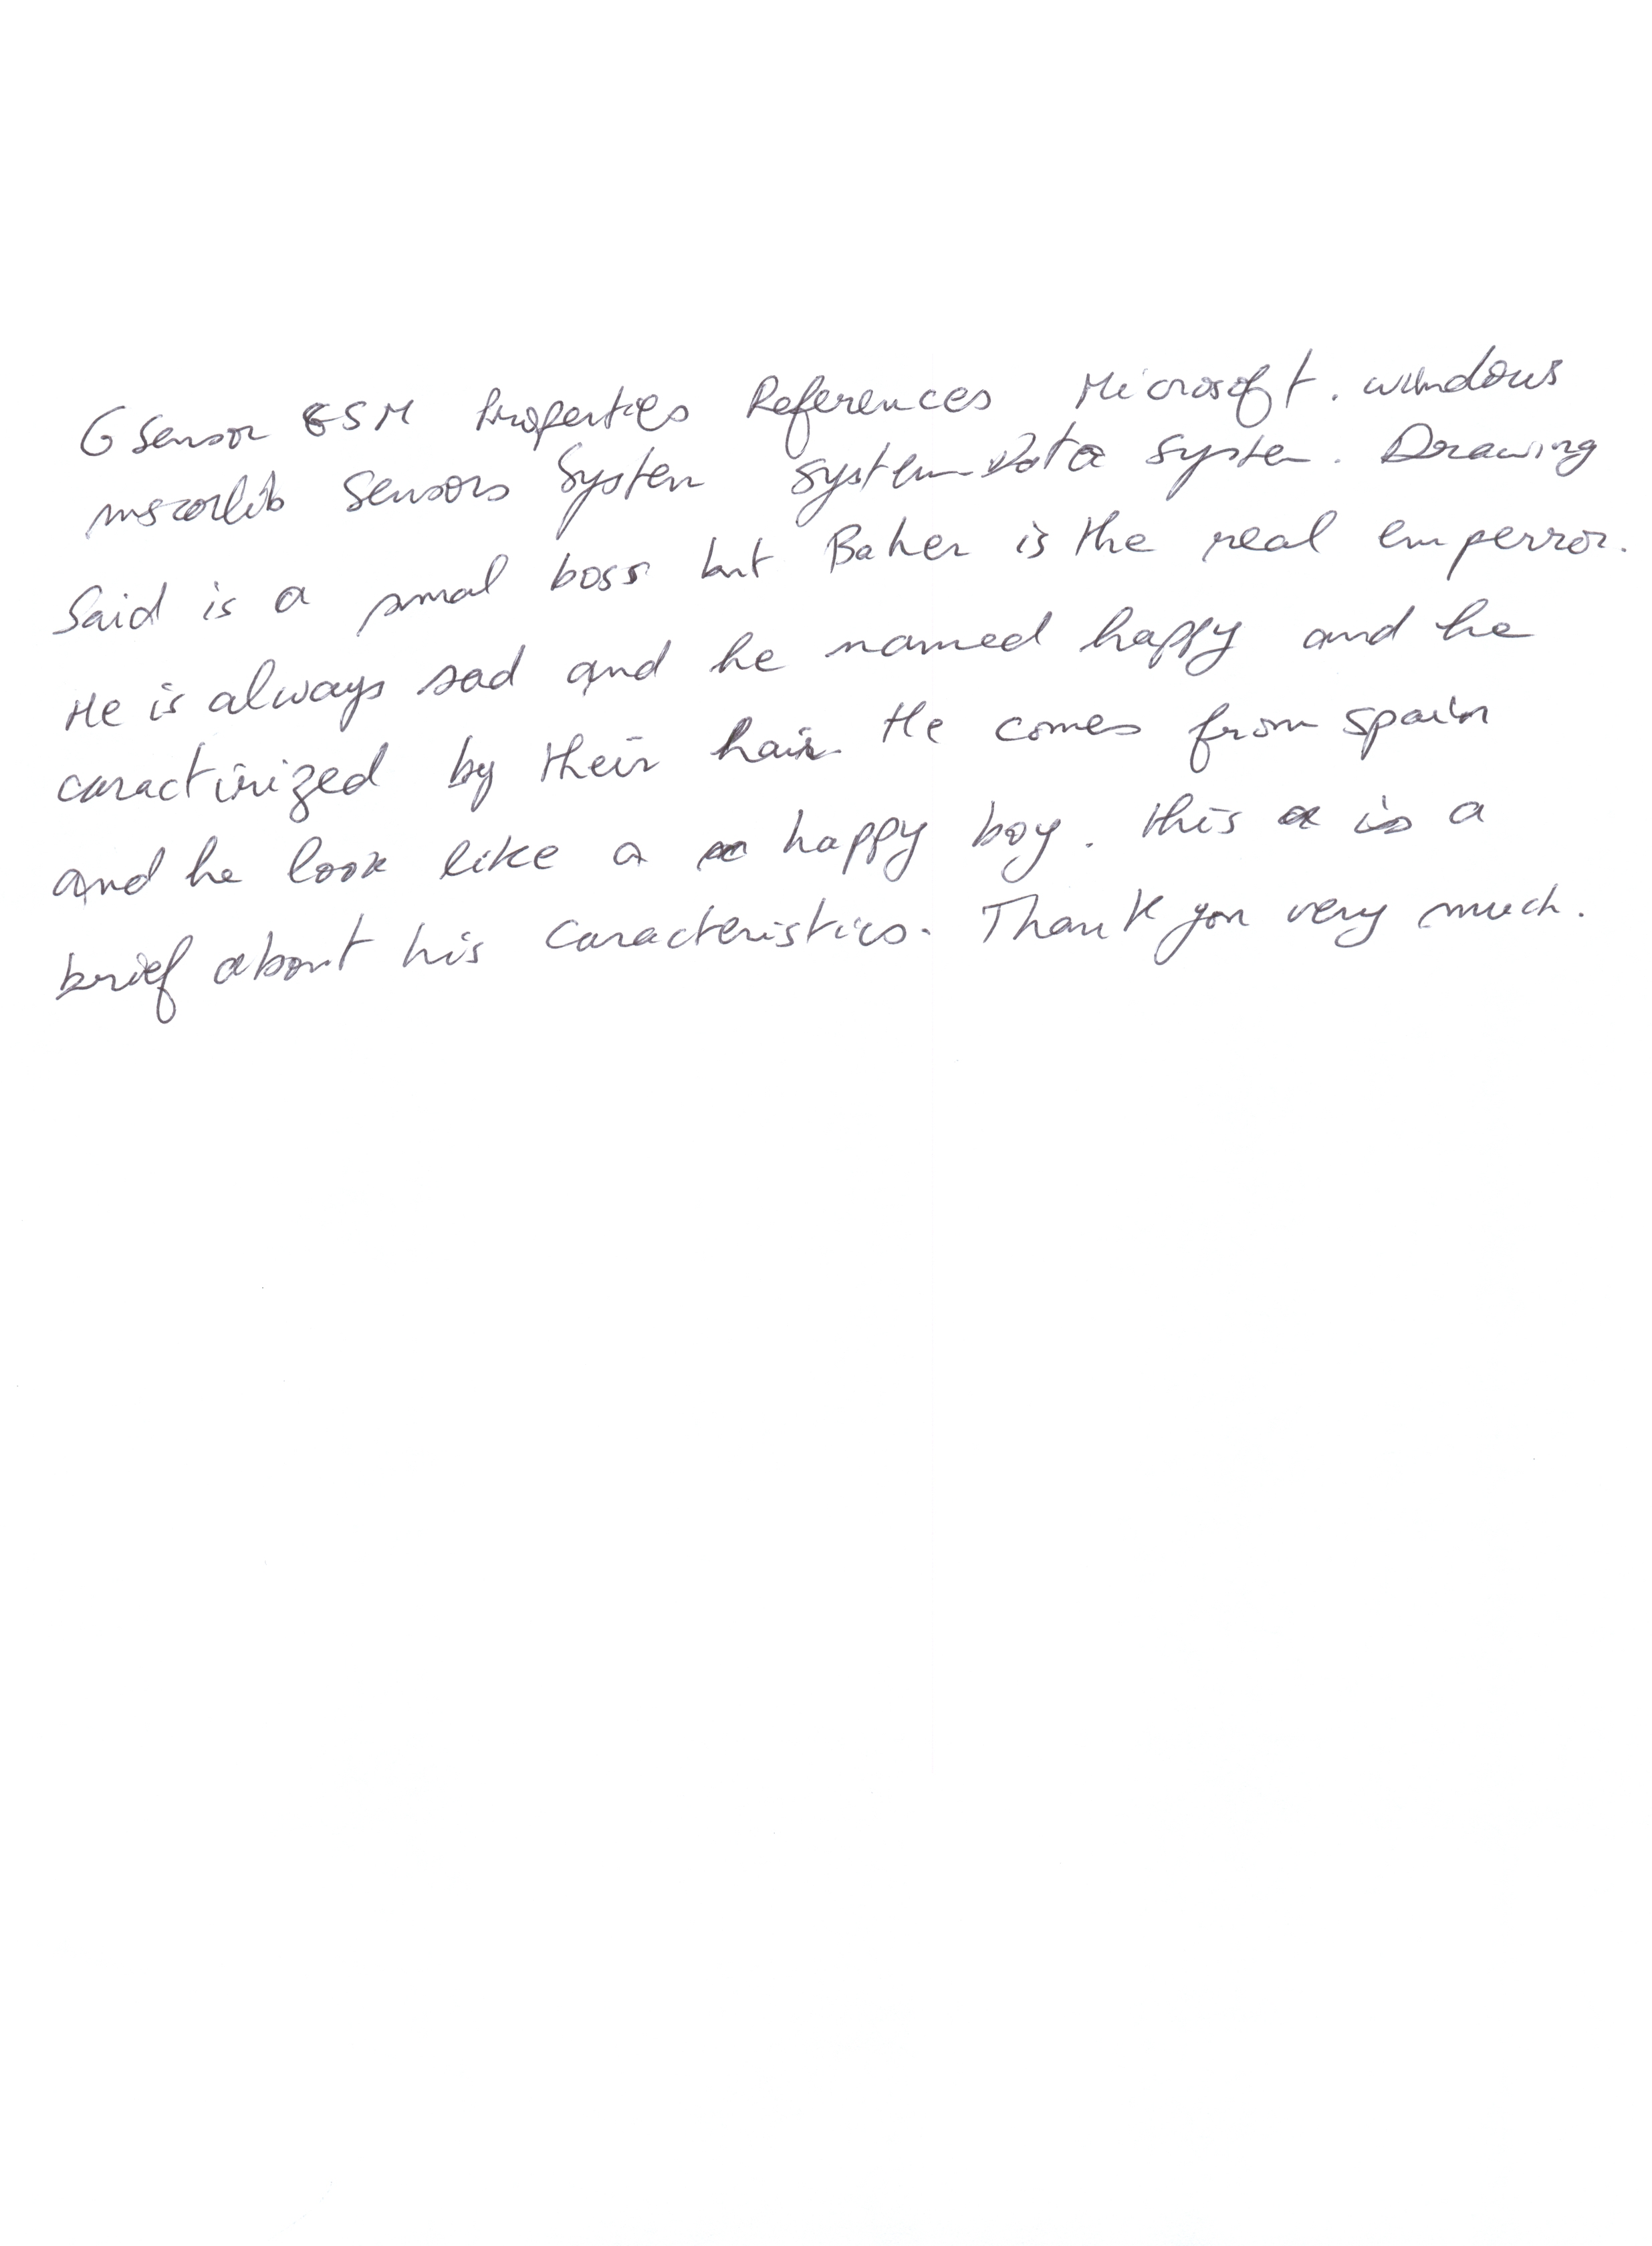 GSensor GSM Properties References Microsoft. windows
mscorlib Sensors System System.Data System. Drawing
Said is a smal boss but Baher is the real emperror.
He is always sad and he named happy and he
caractirized by their hair. He comes from spain
and he look like a happy boy. this is a
brief about his caracteristics. Thank you very much.